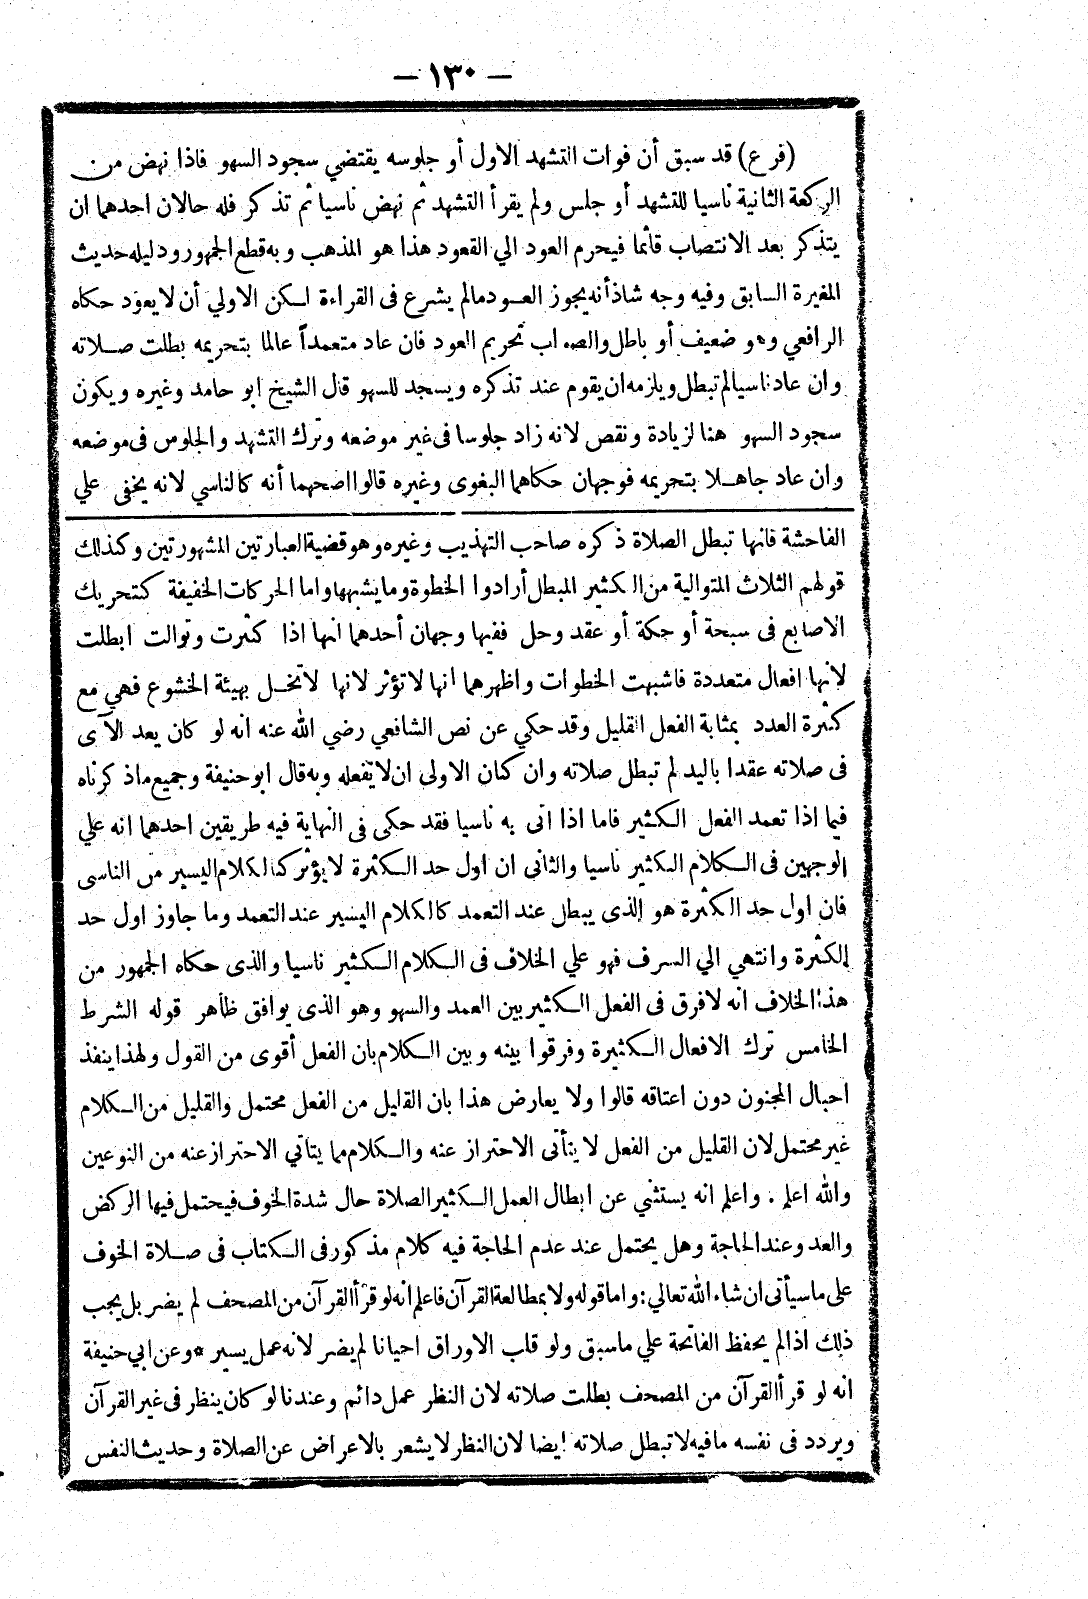 – ١٣٠ –
(فرع) قد سبق أن فوات التشهد الاول أو جلوسه يقتضي سجود السهو فاذا نهض من
الركعة الثانية ناسيا للتشهد أو جلس ولم يقرأ التشهد ثم نهض ناسيا ثم تذكر فله حالان احدهما ان
يتذكر بعد الانتصاب قائما فيحرم العود الي القعود هذا هو المذهب وبه قطع الجمهور ودليله حديث
المغيرة السابق وفيه وجه شاذ أنه يجوز العود مالم يشرع فى القراءة لكن الاولي أن لا يعود حكاه
الرافعي وهو ضعيف أو باطل والصواب تحريم العود فان عاد متعمداً عالما بتحريمه بطلت صلاته
وان عاد ناسيا لم تبطل ويلزمه ان يقوم عند تذكره ويسجد للسهو قال الشيخ ابو حامد وغيره ويكون
سجود السهو هنا لزيادة ونقص لانه زاد جلوسا فى غير موضعه وترك التشهد والجلوس فى موضعه
وان عاد جاهلا بتحريمه فوجهان حكاهما البغوى وغيره قالوا اصحهما أنه كالناسي لانه يخفى علي
الفاحشة فانها تبطل الصلاة ذكره صاحب التهذيب وغيره وهو قضية العبارتين المشهورتين وكذلك
قولهم الثلاث المتوالية من الكثير المبطل أرادوا الخطوة وما يشبهها واما الحركات الخفيفة كتحريك
الاصابع فى سبحة أو حكة أو عقد وحل ففيها وجهان أحدهما انها اذا كثرت وتوالت ابطلت
لانها افعال متعددة فاشبهت الخطوات واظهرهما انها لا تؤثر لانها لا تخل بهيئة الخشوع فهي مع
كثرة العدد بمثابة الفعل القليل وقد حكي عن نص الشافعي رضي الله عنه انه لو كان يعد الآى
فى صلاته عقدا باليد لم تبطل صلاته وان كان الاولى ان لا يفعله وبه قال ابو حنيفة وجميع ماذكرناه
فيما اذا تعمد الفعل الكثير فاما اذا اتى به ناسيا فقد حكى فى النهاية فيه طريقين احدهما انه علي
الوجهين فى الكلام الكثير ناسيا والثانى ان اول حد الكثرة لا يؤثر كالكلام اليسير من الناسى
فان اول حد الكثرة هو الذى يبطل عند التعمد كالكلام اليسير عند التعمد وما جاوز اول حد
الكثرة وانتهي الي السرف فهو علي الخلاف فى الكلام الكثير ناسيا والذى حكاه الجمهور من
هذا الخلاف انه لا فرق فى الفعل الكثير بين العمد والسهو وهو الذى يوافق ظاهر قوله الشرط
الخامس ترك الافعال الكثيرة وفرقوا بينه وبين الكلام بان الفعل أقوى من القول ولهذا ينفذ
احبال المجنون دون اعتاقه قالوا ولا يعارض هذا بان القليل من الفعل محتمل والقليل من الكلام
غير محتمل لان القليل من الفعل لا يتأتى الاحتراز عنه والكلام مما يتاتي الاحتراز عنه من النوعين
والله اعلم . واعلم انه يستثني عن ابطال العمل الكثير الصلاة حال شدة الخوف فيحتمل فيها الركض
والعد وعند الحاجة وهل يحتمل عند عدم الحاجة فيه كلام مذكور فى الكتاب فى صلاة الخوف
على ما سيأتى ان شاء الله تعالي: واما قوله ولا بمطالعة القرآن فاعلم انه لو قرأ القرآن من المصحف لم يضر بل يجب
ذلك اذا لم يحفظ الفاتحة علي ما سبق ولو قلب الاوراق احيانا لم يضر لانه عمل يسير * وعن ابي حنيفة
انه لو قرأ القرآن من المصحف بطلت صلاته لان النظر عمل دائم وعندنا لو كان ينظر فى غير القرآن
ويردد فى نفسه مافيه لا تبطل صلاته ايضا لان النظر لا يشعر بالاعراض عن الصلاة وحديث النفس